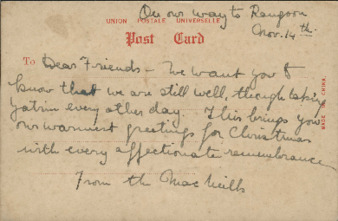 On our way to Rangoon
Nov. 14th
UNION POSTALE UNIVERSELLE
Post Card
To Dear Friends - We want you to
know that we are still well, though taking
quinine every other day. This brings you
our warmest greetings for Christmas
with every affectionate remembrance
From the MacNeills
MADE CHINA